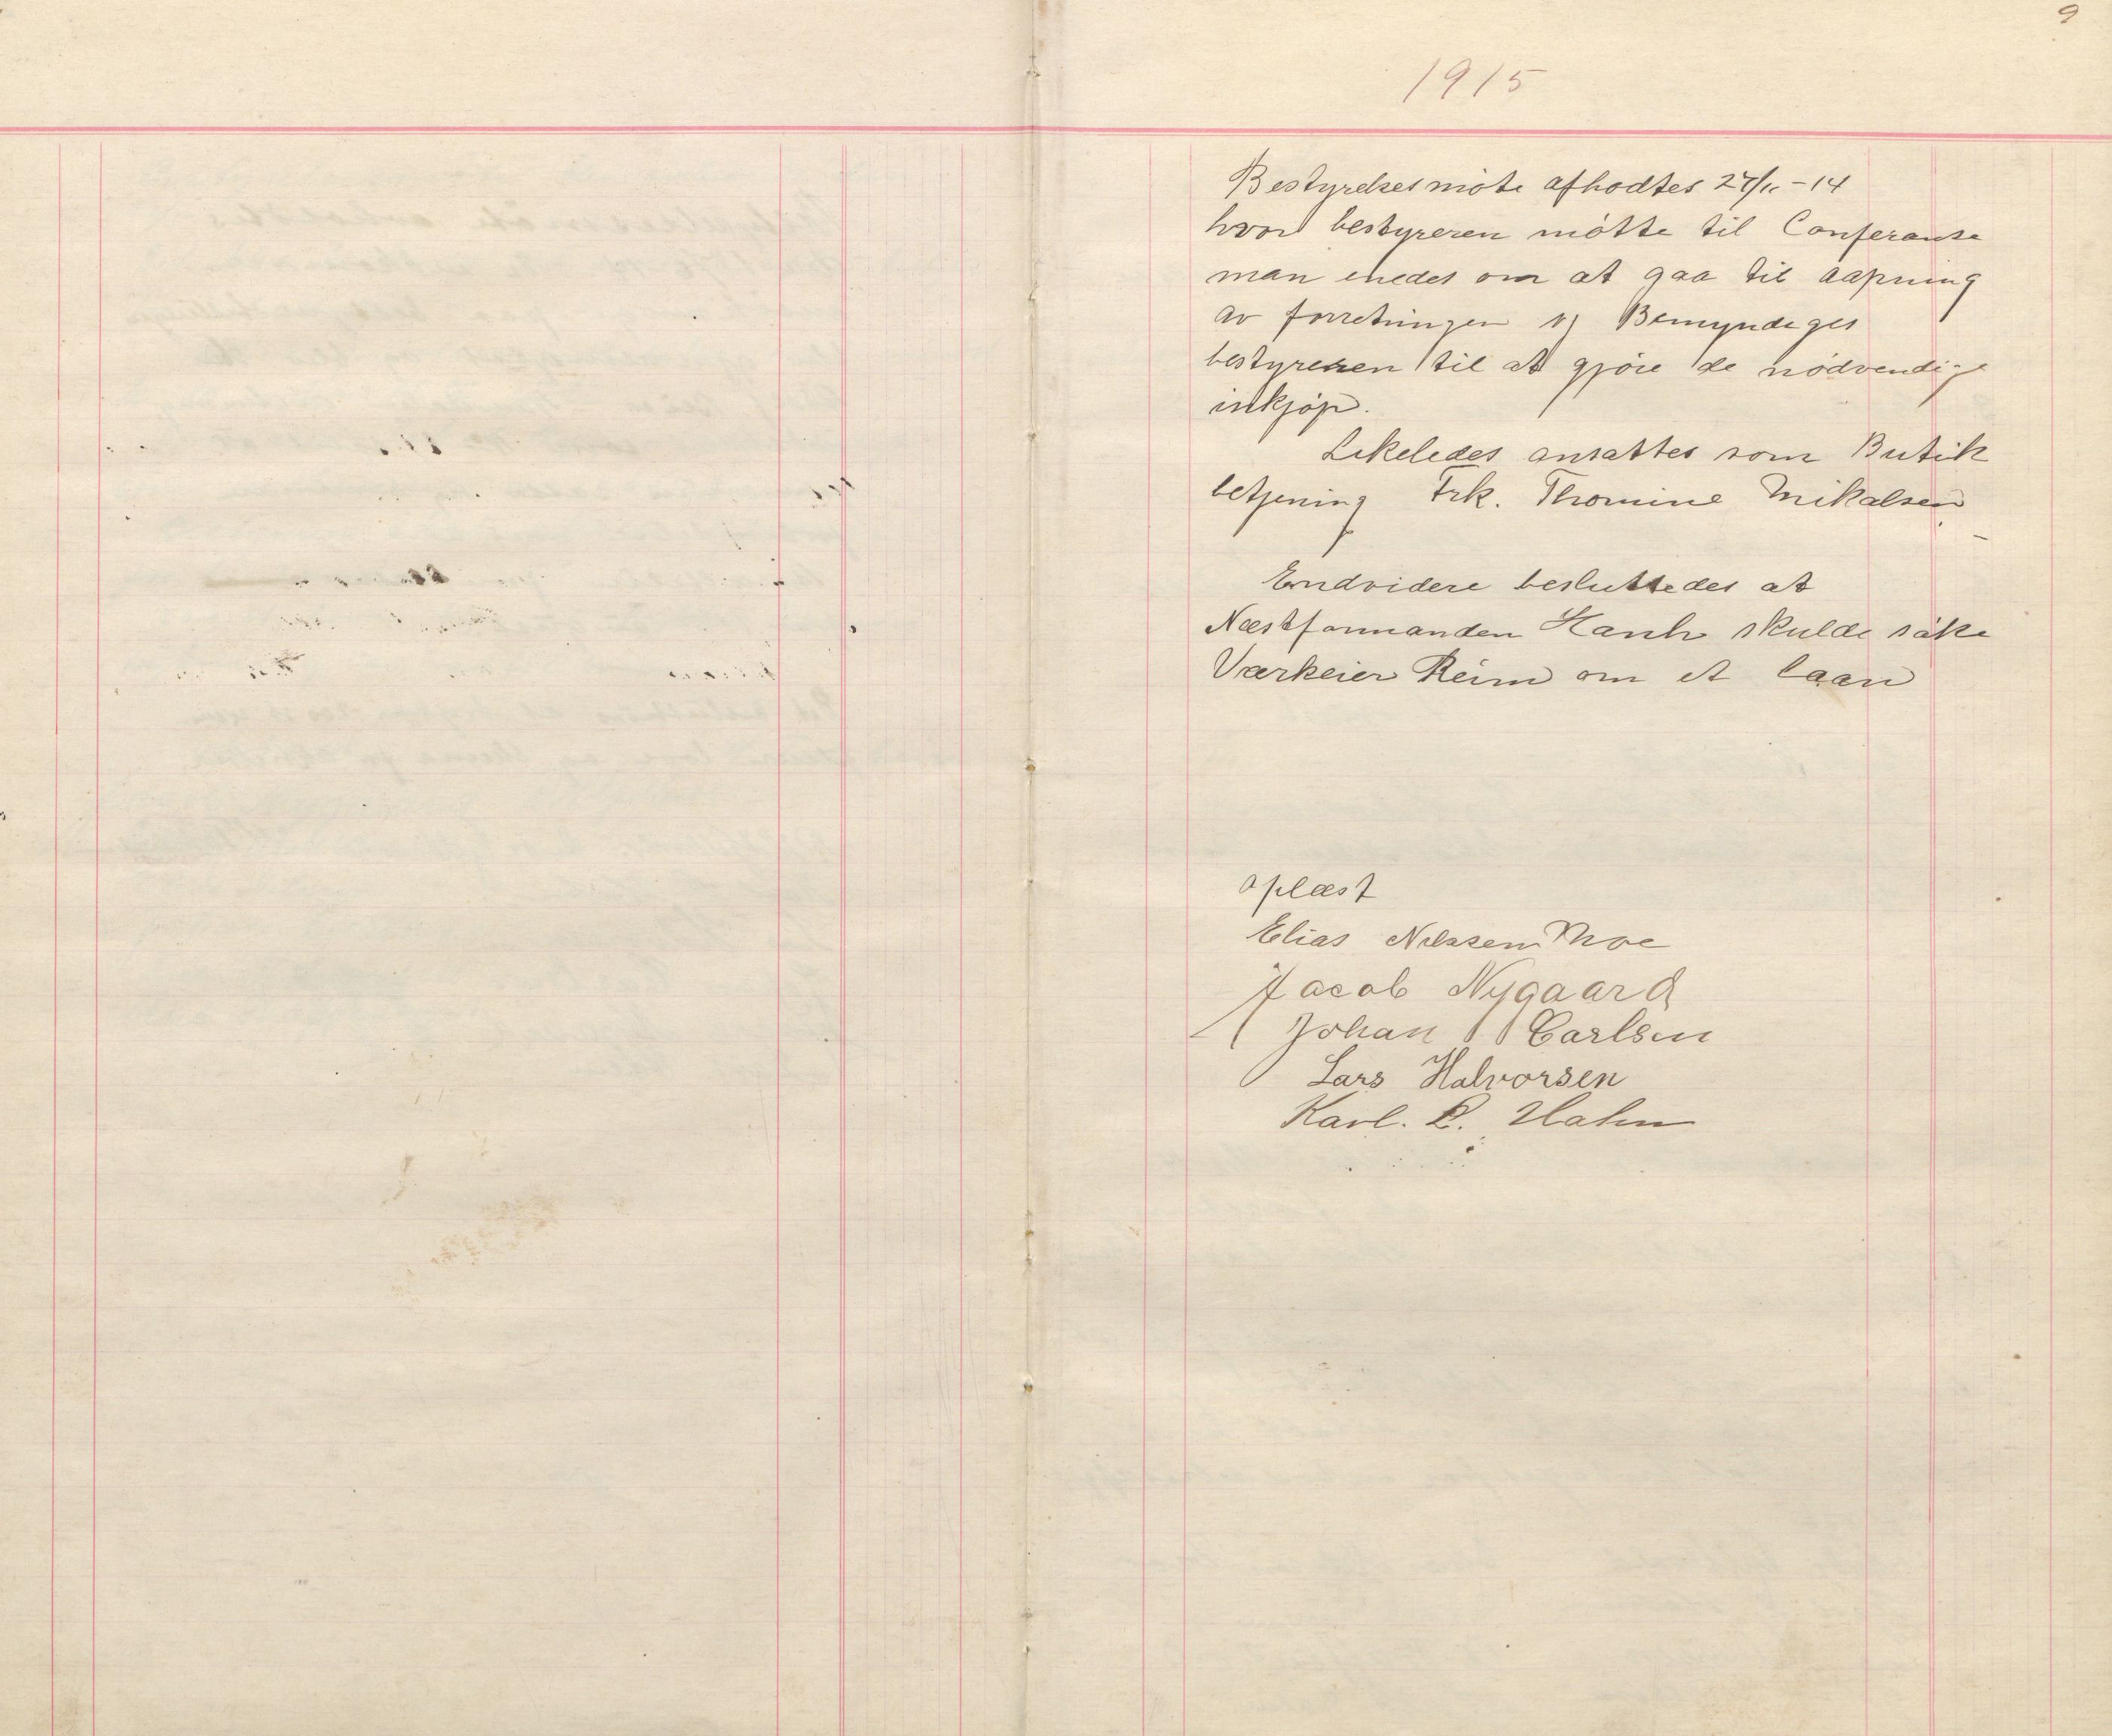 9
1915
Bestyrelsesmöte afhodtes 27/11-14
hvor bestyreren mötte til Conferanse
man enedes om at gaa til aapning
av forretningen og Bemyndeges
bestyreren til at gjöre de nödvendige
inkjöp.
Likeledes ansattes som Butik
betjening Frk. Thomine Mikalsen
Endvidere besluttedes at
Næstformanden Hanh skulde söke
Værkeier Reim om et laan
oplæst
Elias Nilssen Moe
Jacob Nygaard
Johan Carlsen
Lars Halvorsen
Karl. L. Hahn